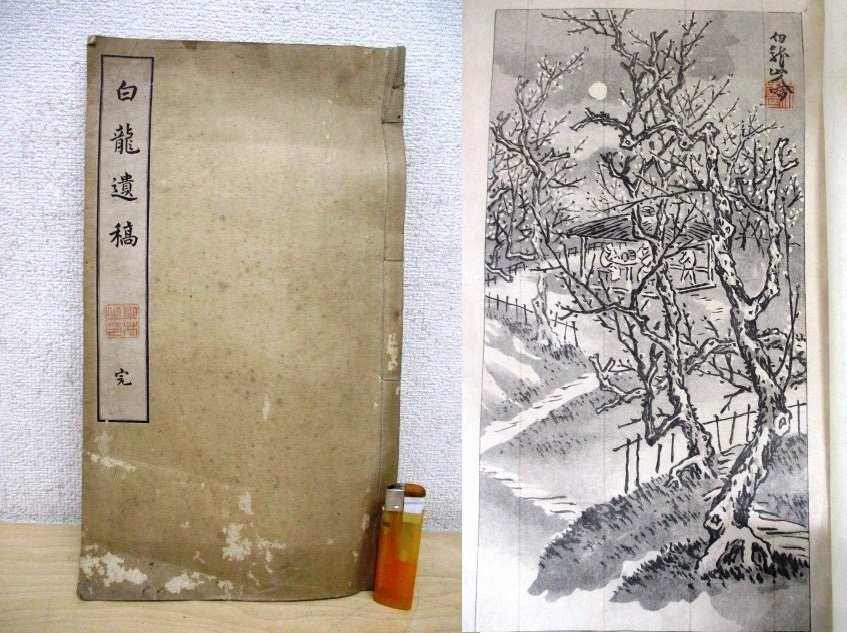 白龍遺稿
完
白龍山人